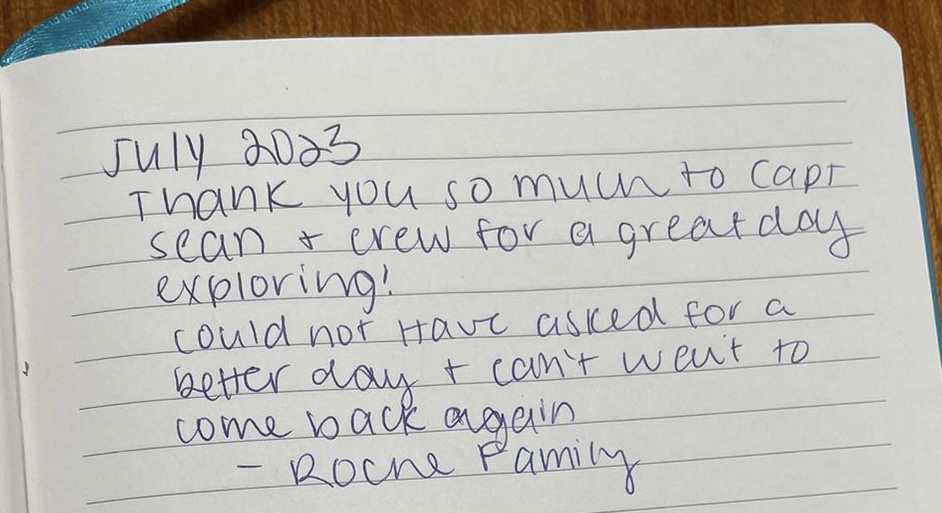 July 2023
Thank you so much to Capt
Sean + crew for a great day
exploring!
Could not Have asked for a
better day + can't wait to
come back again
- Roche Family